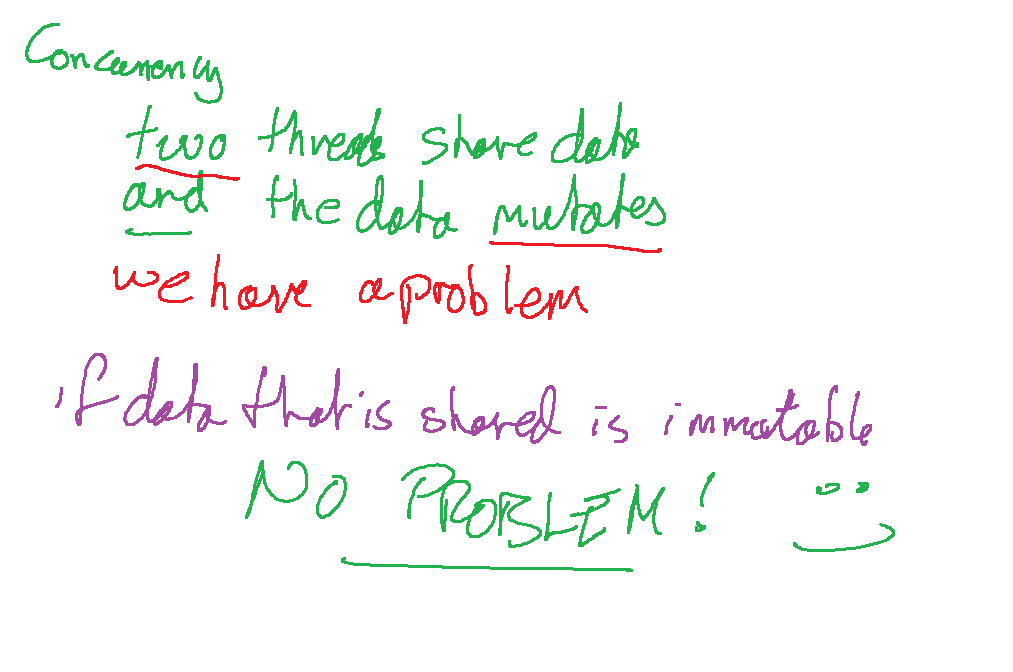 Concurrency
two threads share data
and the data mutates
we have a problem
if data that is shared is immutable
NO PROBLEM!